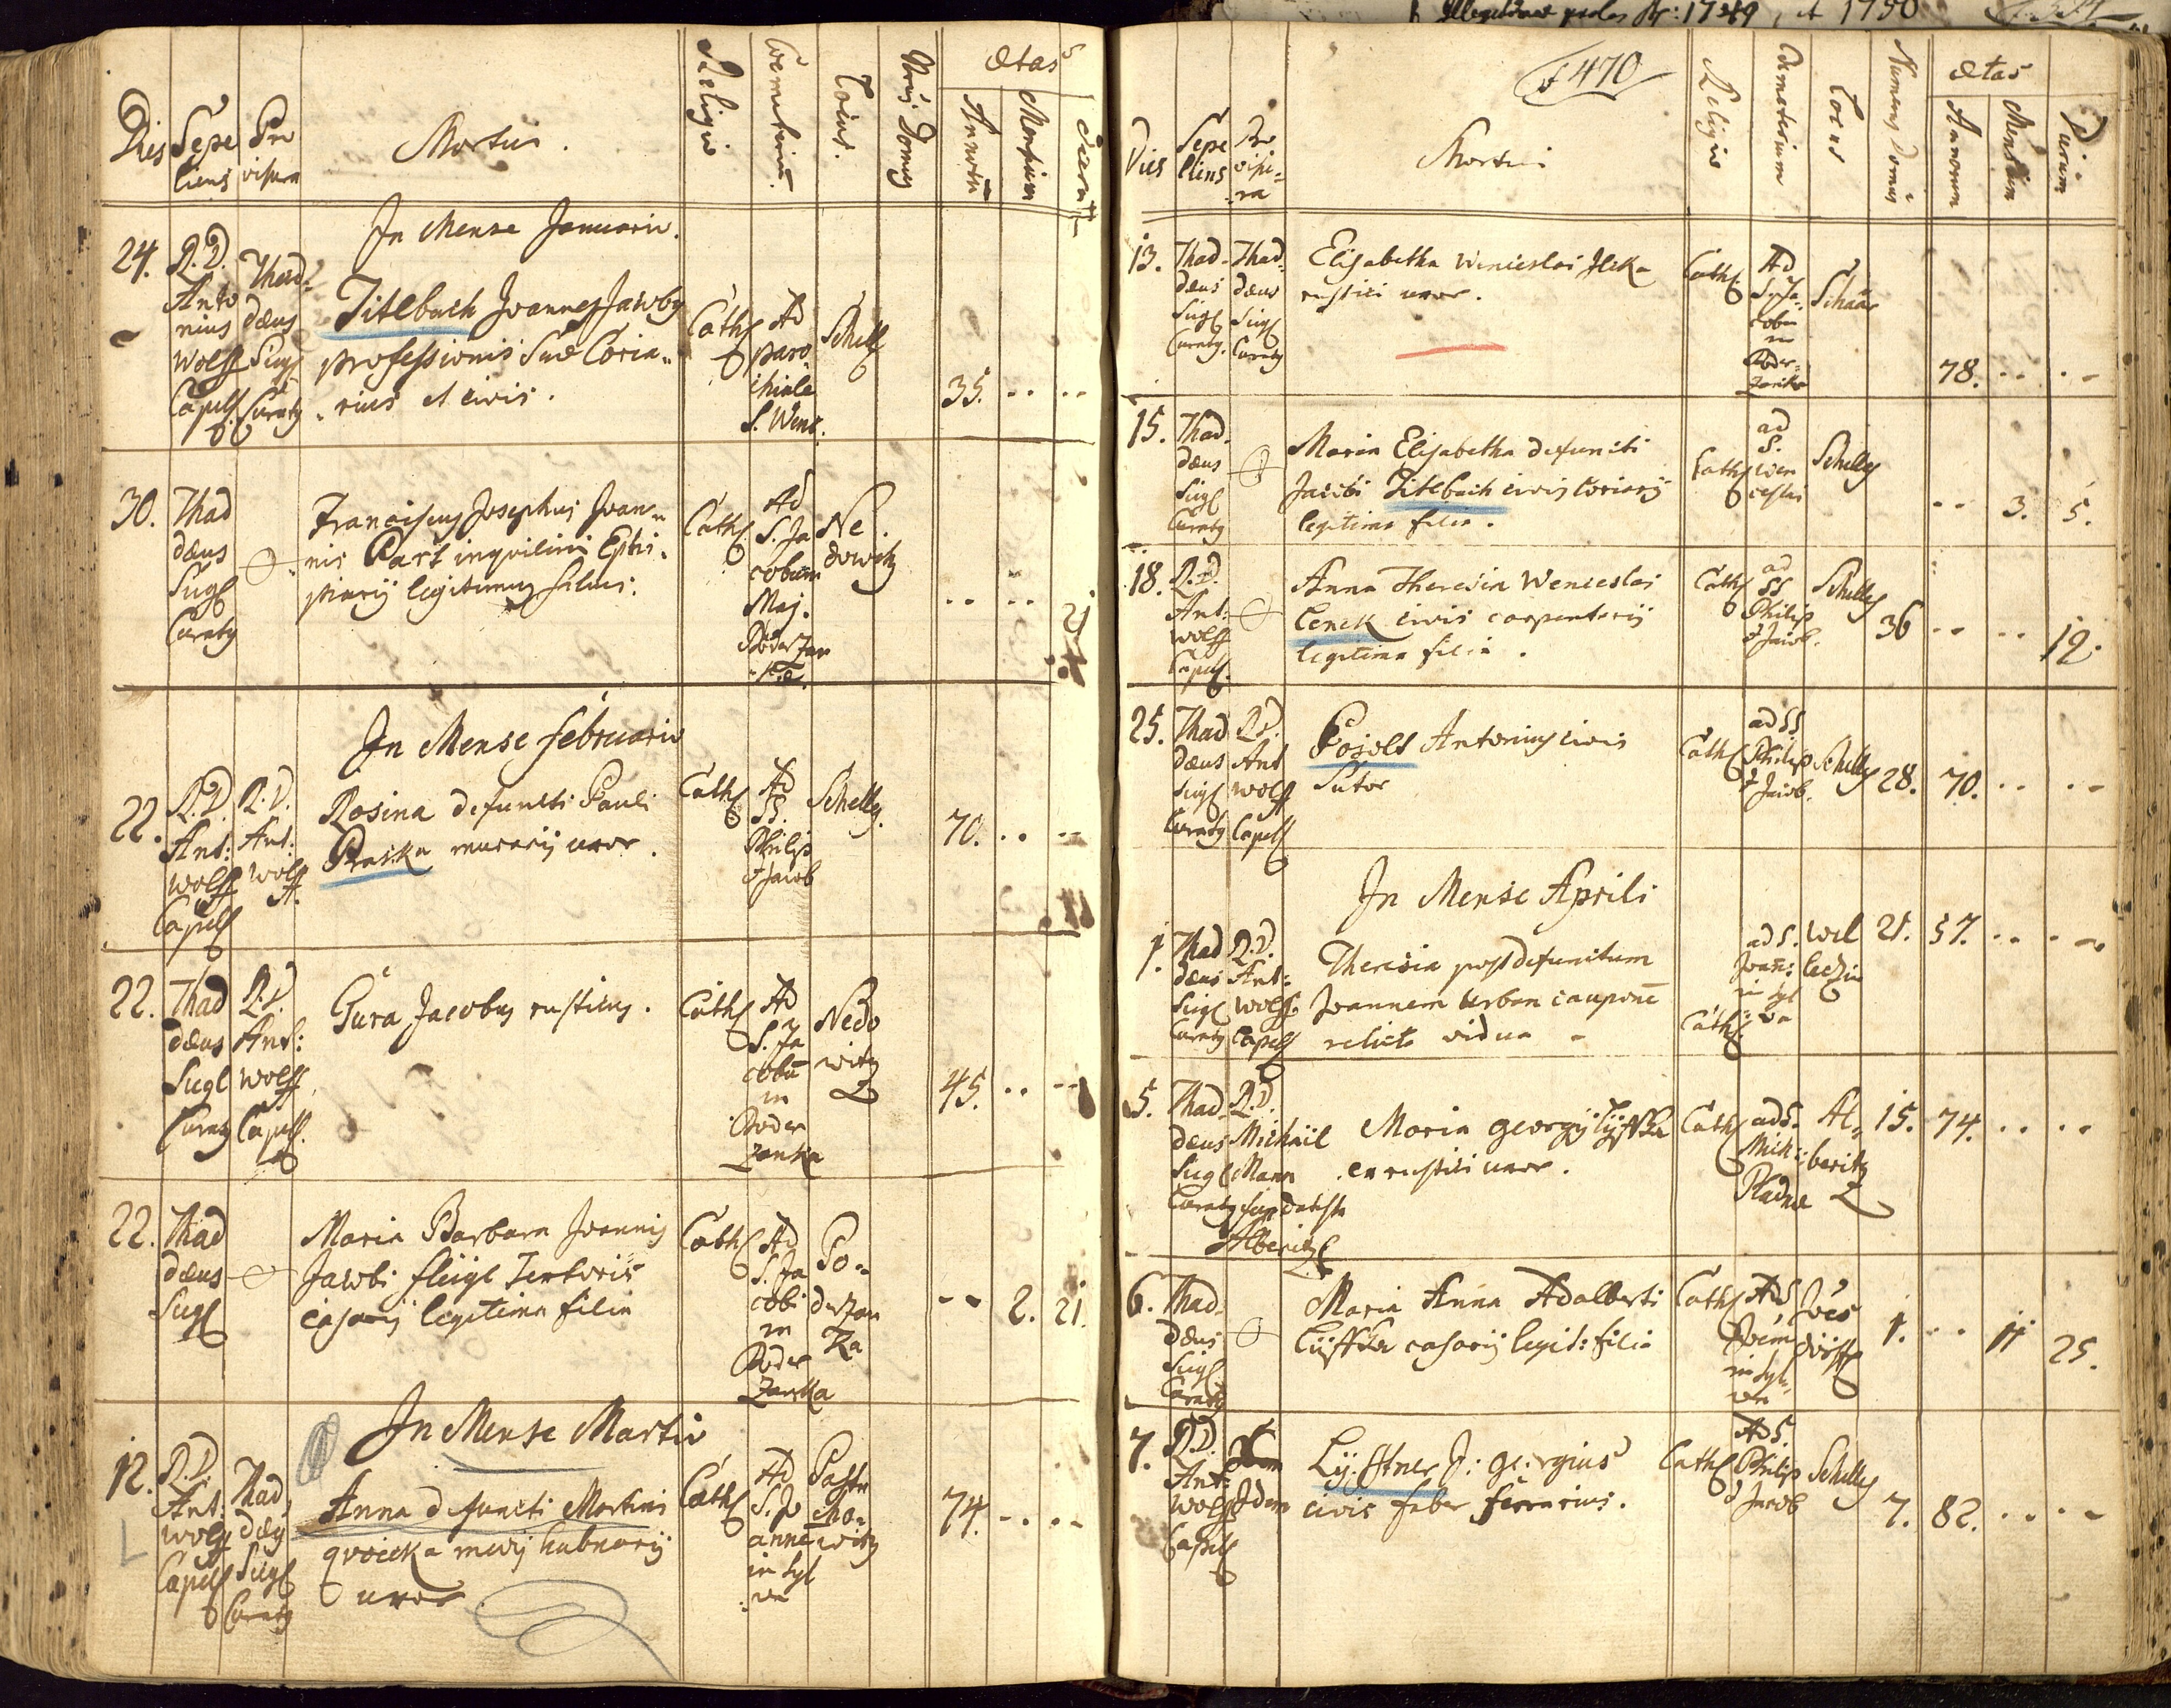 Dies
Sepe
liens
Pro
visura
Mortui.
Religio
Coemeterium.
Locus.
Nrus Domus
Ætas
Annorū
Mensium
Dierum
In Mense Januario.
24.
R. D.
Anto
nius
Wolff
Capell
Thad
dæus
Sugl
Curatg
Titlbach Joannes Jacobg
professionis Suæ Coria„
„rius et civis.
Cath
Ad
paro
chiale
S. Wenc.
Schell
35. .. ..
30.
Thad
dæus
Sugl
Curatg
Franciscus Josephus Joan„
nis Part inqvilini Ephi„
piarij legitimus filius.
Cath
Ad
S. Ja
cobum
Maj.
Poderzan
Ne
dowitz
.. ..
In Mense februario
22.
R. D.
Ant:
Wolff
Capell
R. D.
Ant:
Wolff
Rosina defuncti Pauli
Praska murarij uxor.
Cath
Ad
SS.
Philip
& Jacob
Schelly.
70. .. ..
22.
Thad
dæus
Sugl
Curatg
R. D.
Ant:
Wolff
Capell.
Gura Jacobus rusticus.
Cath
Ad
S. Ja
cobū
in
Poder
zanka
Nedo
witz
45. .. ..
22.
Thad
dæus
Sugl
Maria Barbara Joannis
Jacobi fleigl Textoris
casarij legitima filia
Cath
Ad
S. Ja
cobi
in
Poder
zanka
Po„
derzan
Ka
.. 2. 21.
In Mense Martio
12.
R. D.
Ant:
Wolff
Capell
Thad
dæg
Sugl
Curatg
Anna defuncti Martini
qvoicka medij hubnarij
uxor
Cath
Ad
S. Jo
anne
in Syl
va
Pastu
cho„
witz
74. .. ..
Illegitimæ proles Ao: 1749, et 1750
f 470
Dies
Sepe
liens
Pro
visu„
ra
Mortui
Religio
Cæmeterium
Locus
Numerus Domus
Ætas
Annorum
Mensium
Dierum
13.
Thad
dæus
Sugl
Curatg.
Thad
dæus
Sugl
Curatg
Elisabetha Wenceslai Jlka
rustici uxor.
Cath
Ad
S. Ja„
cobū
in
Poder„
zanka
Schaar
78. .. ..
15.
Thad
dæus
Sugl
Curatg
Maria Elisabetha defuncti
Jacobi Titlbach civis Coriarij
legitima filia.
Cath
ad
S.
Wen
ceslai
Schelly
.. 3. 5.
18.
R. D.
Ant:
Wolff
Capell.
Anna Theresia Wenceslai
Cenek civis carpentarij
legitima filia.
Cath
ad
SS
Philip
& Jacob.
Schelly
36 .. .. 12.
25.
Thad
dæus
Sugl
Curatg
R. D.
Ant
Wolff
Capell
Pojolt Antonius civis
Sutor
Cath
ad SS.
Philip
& Jacob.
Schelly
28. 70. .. ..
In Mense Aprili
1.
Thad
dæus
Sugl
Curatg
R. D.
Ant:
Wolff
Capell
Theresia post defunctum
Joannem Urban cauponē
relicta vidua
Cath
ad S.
Joan̄:
in Syl
va
Wel
lechin
21. 57. .. ..
5.
Thad
dæus
Sugl
Curatg
R. D.
Michaël
Mann
fundatista
Alberitz
Maria Georgij Lysska
ex rustici uxor.
Cath
ad S.
Mich:
Pladne
Al„
beritz
15. 74. .. ..
6.
Thad
dæus
Sugl
Curatg
Maria Anna Adalberti
Lysska casarij legit: filia
Cath
Ad S
Joem
in Syl„
va
Joës
dorff
1. .. 11 25.
7.
R. D.
Ant:
Wolff
Capell
Idem
Lijfftner J: Georgius
civis faber ferrarius.
Cath
Ad S.
Philip
& Jacob
Schelly
7. 82. .. ..